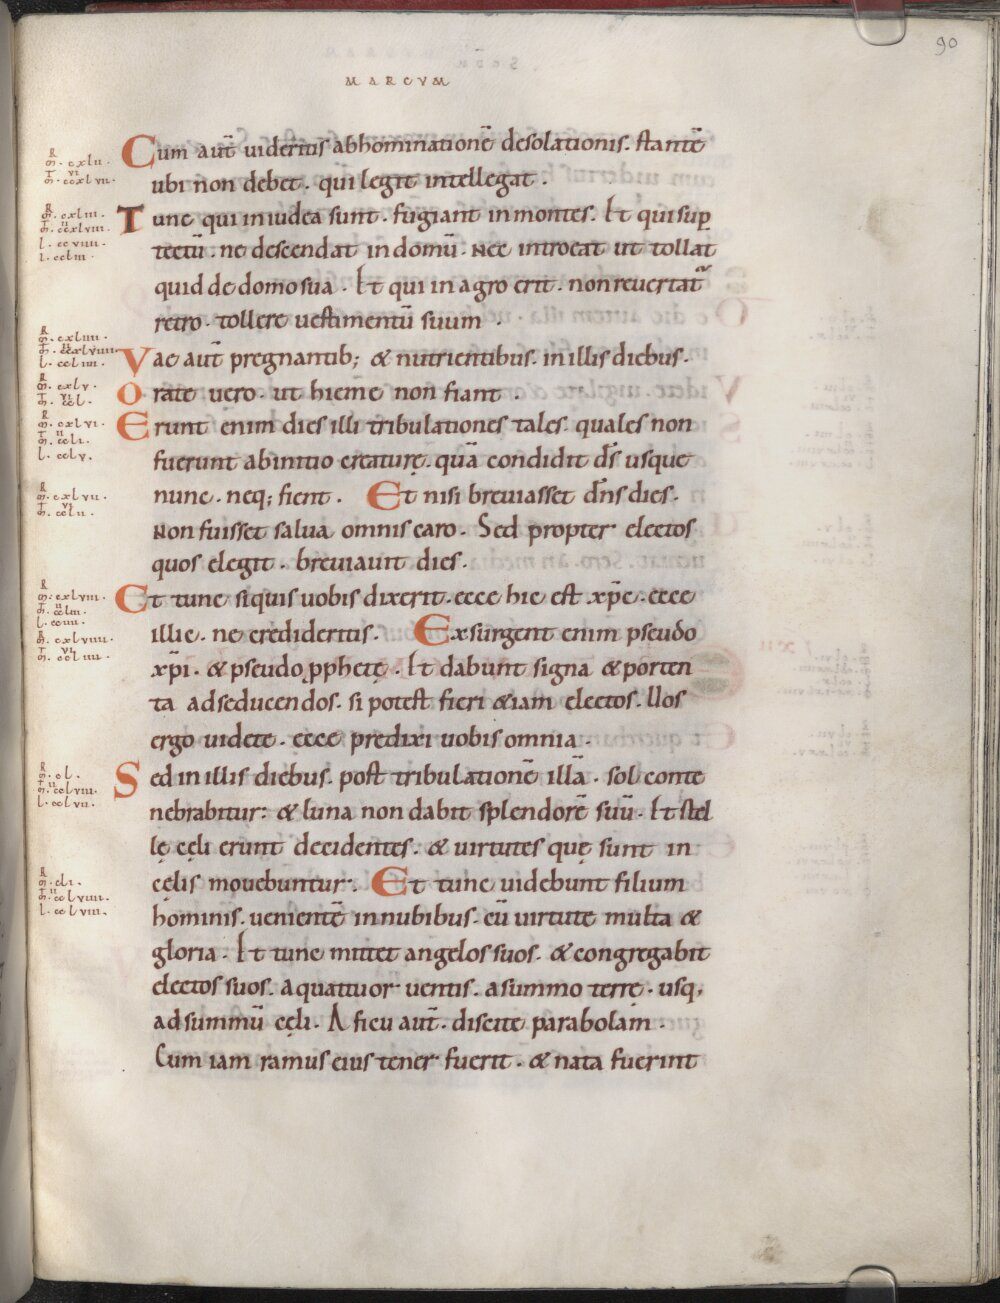 90
MARCVM
Cum aut̄ uideritis abhominationē desolationis. stantē
ubi non debet. qui legit intellegat.
Tunc qui in iudea sunt. fugiant in montes. Et qui sup̄
tectū. ne descendat in domū. nec introeat ut tollat
quid de domo sua. Et qui in agro erit. non reuertat᷑
retro. tollere uestimentū suum.
Vae aut̄ pregnantib; & nutrientibus. in illis diebus.
Orate uero. ut hieme non fiant.
Erunt enim dies illi tribulationes tales. quales non
fuerunt ab initio creaturę. quā condidit ds̄ usque
nunc. neq; fient. Et nisi breuiasset dn̄s dies.
Non fuisset salua omnis caro. Sed propter electos
quos elegit. breuiauit dies.
Et tunc siquis uobis dixerit. ecce hic est xp̄c. ecce
illic. ne credideritis. Exsurgent enim pseudo
xp̄i. & pseudo ꝓphetę. Et dabunt signa & porten
ta ad seducendos. si potest fieri &iam electos. Uos
ergo uidete. ecce predixi uobis omnia.
Sed in illis diebus. post tribulationē illā. sol conte
nebrabitur: & luna non dabit splendorē suū. Et stel
lę cęli erunt decidentes. & uirtutes quę sunt in
cęlis mouebuntur. Et tunc uidebunt filium
hominis. uenientē in nubibus. cū uirtute multa &
gloria. Et tunc mittet angelos suos. & congregabit
electos suos. a quattuor uentis. a summo terrę. usq;
ad summū cęli. A ficu aut̄. discite parabolam.
Cum iam ramus eius tener fuerit. & nata fuerint